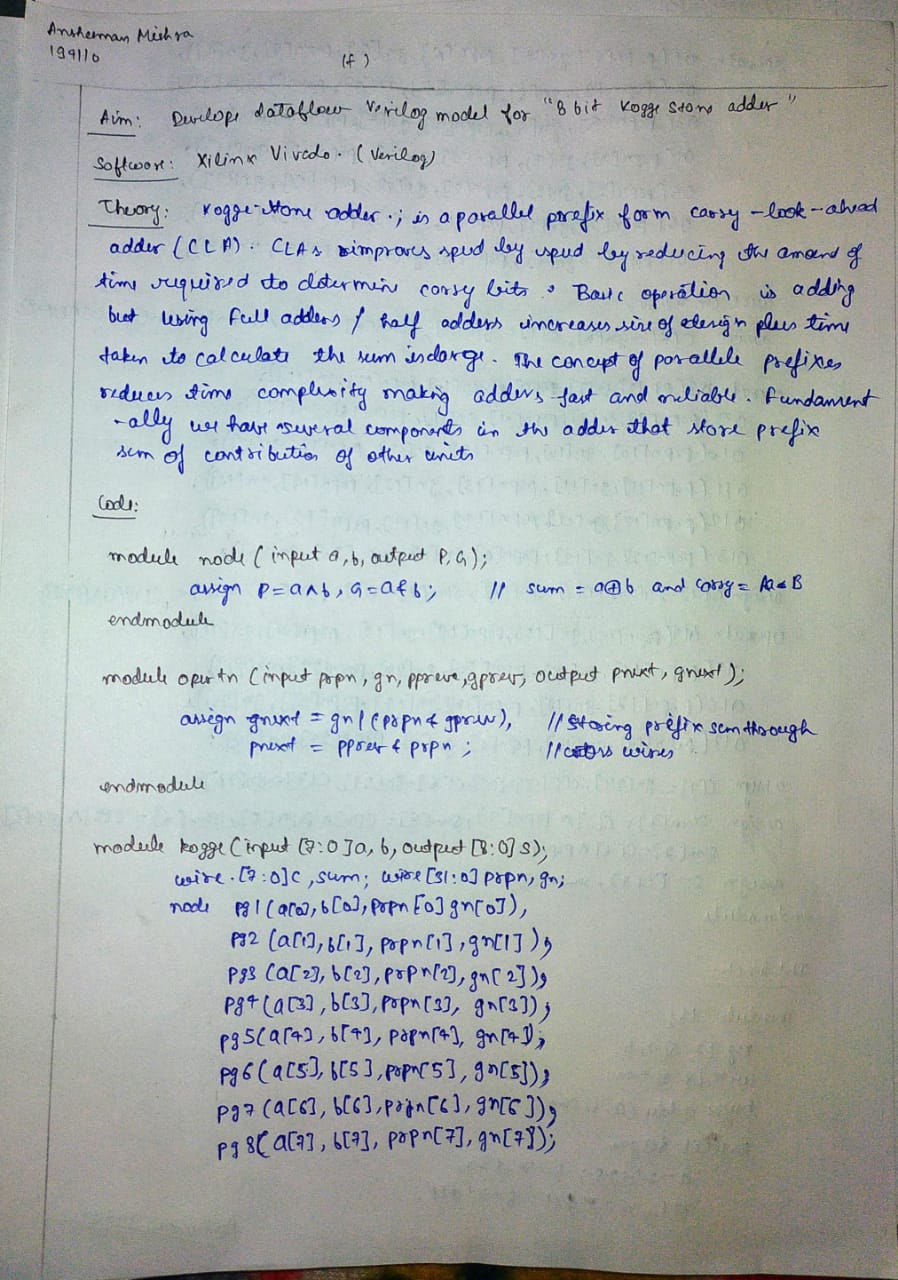 Ansheeman Mishra
199110
(f)
Aim: Develope dataflow Verilog model for "8 bit Kogge Stone adder"
Software: Xilinx Vivado. (Verilog)
Theory: Kogge-Stone adder ; is a parallel prefix form carry-look-ahead
adder (CLA). CLAs improves speed by speed by reducing the amound of
time required to determine carry bits. Basic operation is adding
but using full adders / half adders increases size of design plus time
taken to calculate the sum is large. The concept of parallele prefixes
reduces time complexity making adders fast and reliable. Fundament
-ally we have several components in the adder that store prefix
sum of contribution of other units
Code:
module node (input a, b, output P, G);
assign P = a ^ b, G = a & b; // sum = a⊕b and carry = A&B
endmodule
module opertn (input prpn, gn, ppreve, gprev, output pnext, gnext);
assign gnext = gn | (prpn & gprev), // storing prefix sum through
pnext = pprev & prpn; // wires
endmodule
module kogge (input [7:0] a, b, output [8:0] s);
wire [7:0] c, sum; wire [31:0] prpn, gn;
node pg1 (a[0], b[0], prpn[0] gn[0]),
pg2 (a[1], b[1], prpn[1], gn[1]),
pg3 (a[2], b[2], prpn[2], gn[2]),
pg4 (a[3], b[3], prpn[3], gn[3]),
pg5 (a[4], b[4], prpn[4], gn[4]),
pg6 (a[5], b[5], prpn[5], gn[5]),
pg7 (a[6], b[6], prpn[6], gn[6]),
pg8 (a[7], b[7], prpn[7], gn[7]);